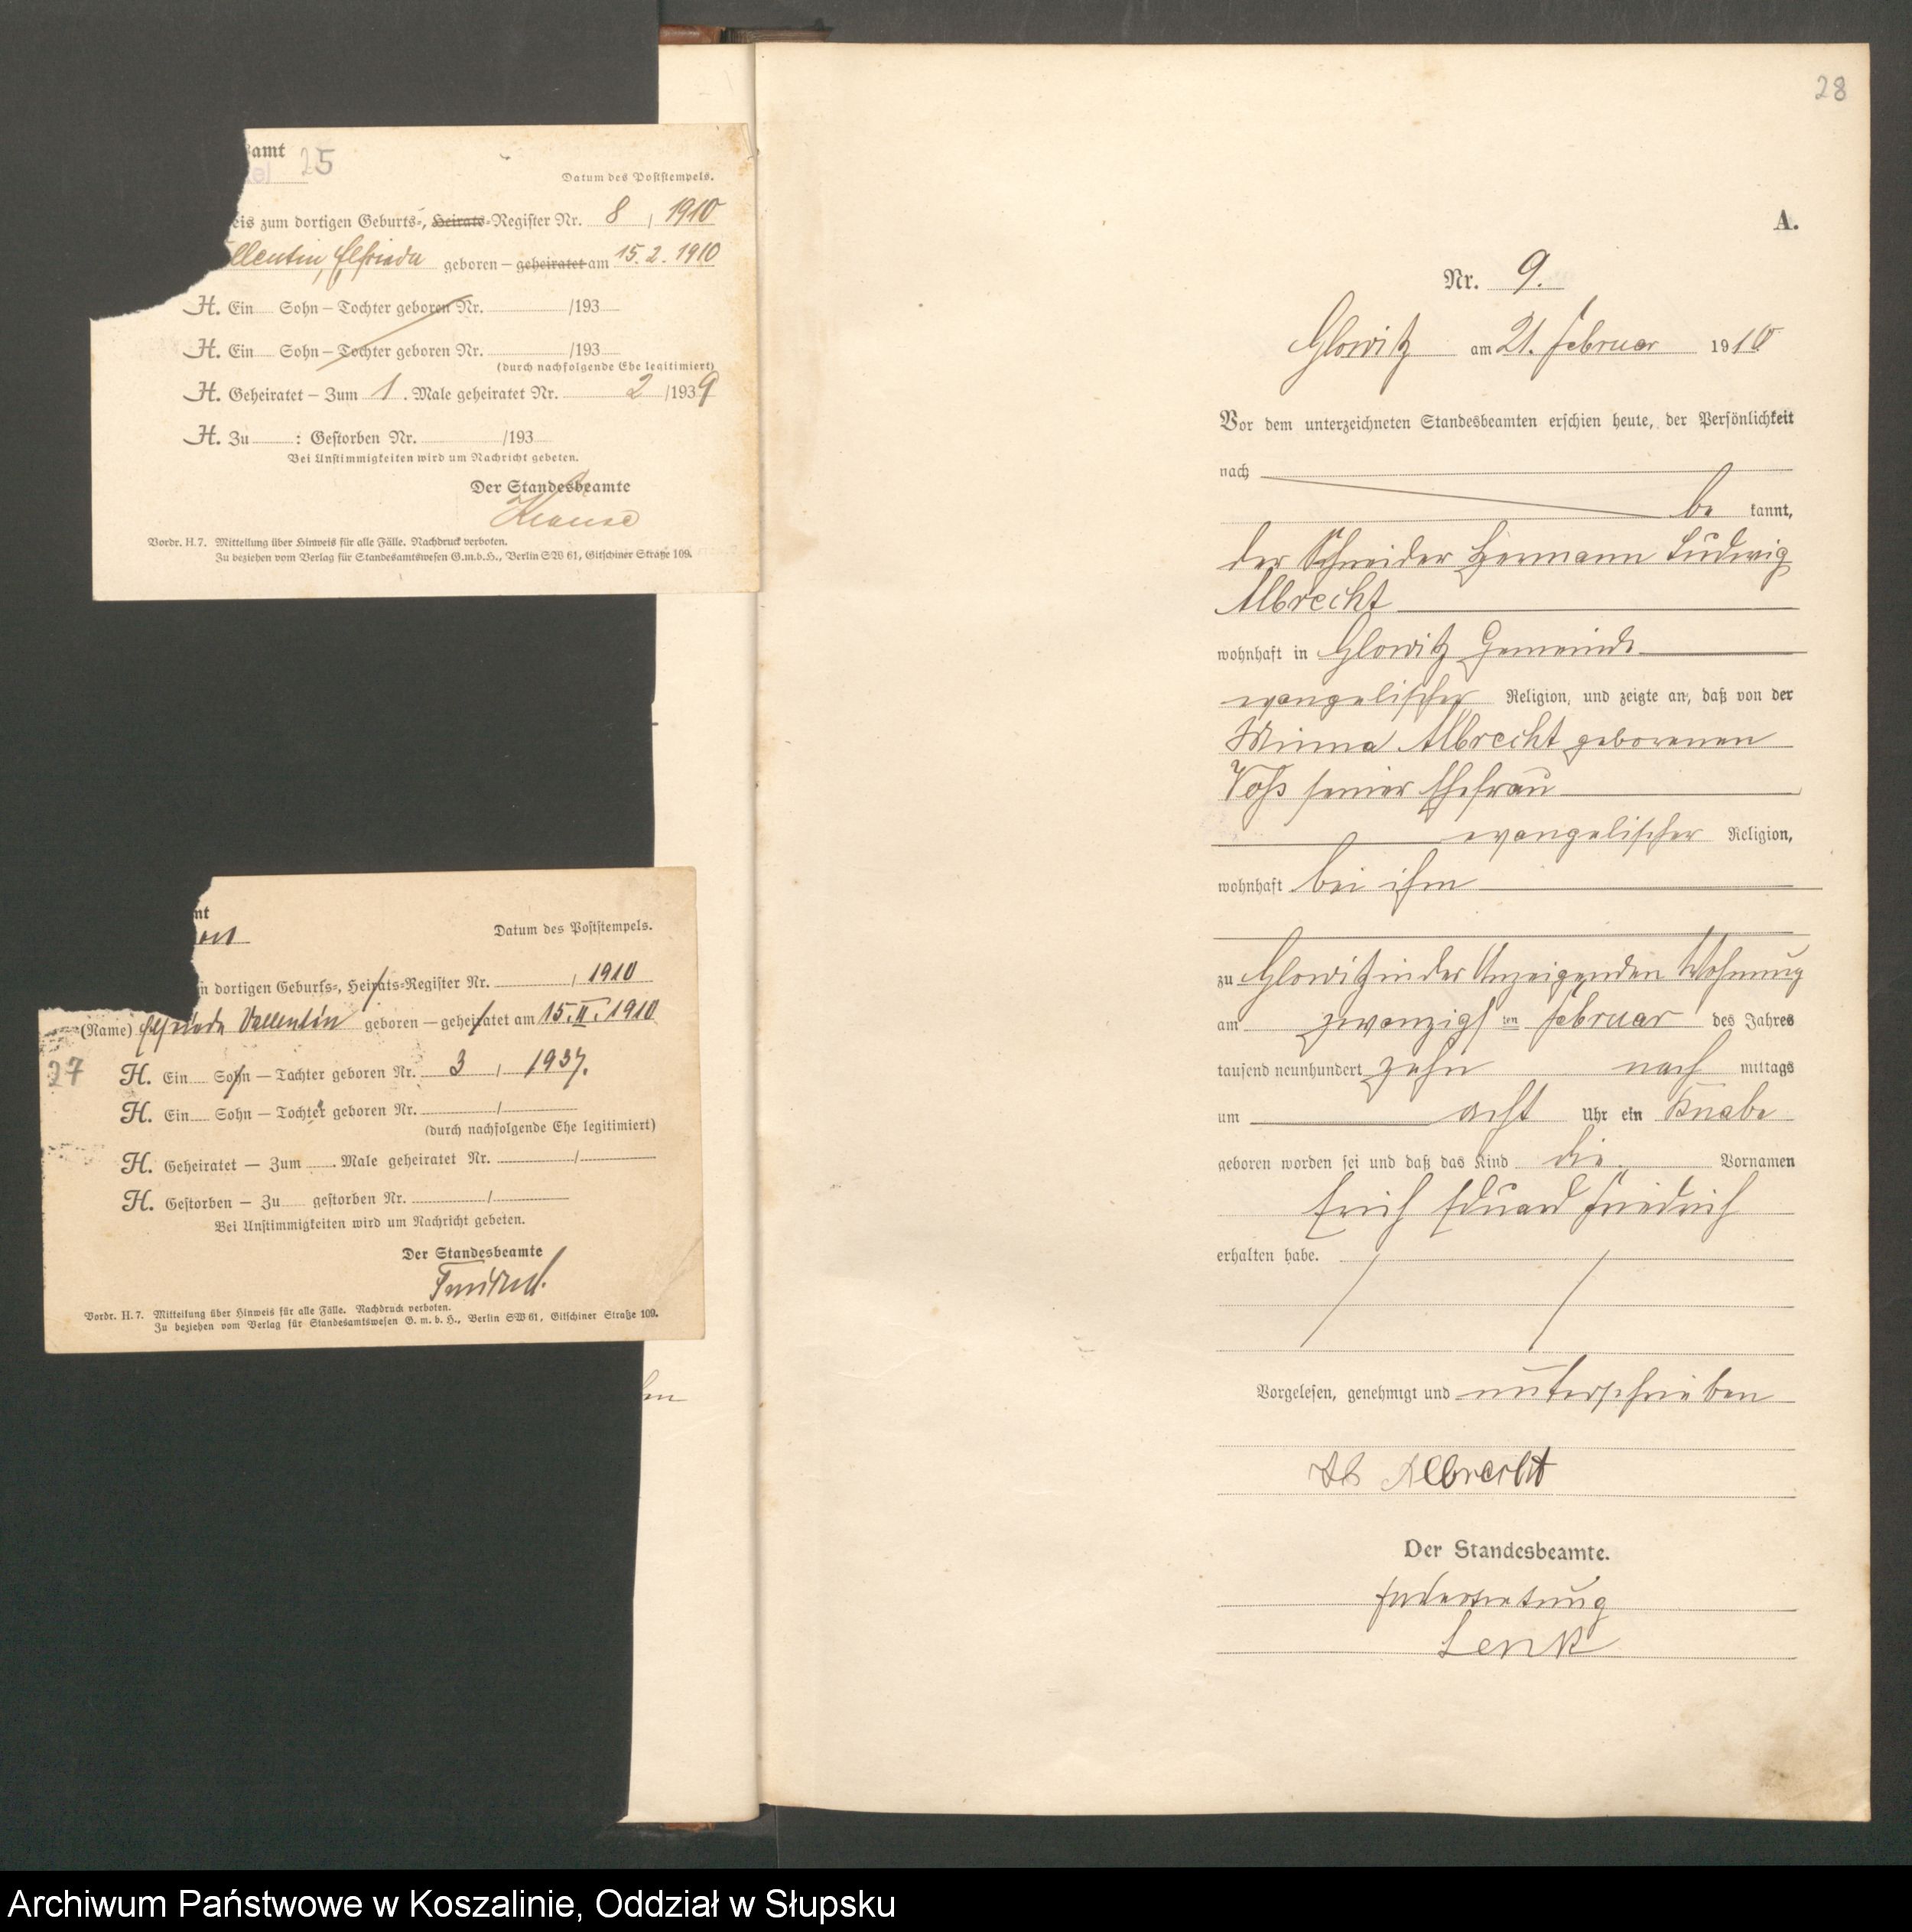 amt
25
Datum des Poststempels.
eis zum dortigen Geburts-, Heirats-Register Nr. 8 / 1910
llentin, Elfrieda geboren – geheiratet am 15.2.1910
H. Ein Sohn – Tochter geboren Nr. /193
H. Ein Sohn – Tochter geboren Nr. /193
(durch nachfolgende Ehe legitimiert)
H. Geheiratet – Zum 1. Male geheiratet Nr. 2 /1939
H. Zu : Gestorben Nr. /193
Bei Unstimmigkeiten wird um Nachricht gebeten.
Der Standesbeamte
Krause
Vordr. H.7. Mitteilung über Hinweis für alle Fälle. Nachdruck verboten.
Zu beziehen vom Verlag für Standesamtswesen G.m.b.H., Berlin SW 61, Gitschiner Straße 109.
mt
Datum des Poststempels.
n dortigen Geburts-, Heirats-Register Nr. / 1910
(Name) Elfrieda Vallentin geboren – geheiratet am 15.II.1910
27
H. Ein Sohn – Tochter geboren Nr. 3 / 1937.
H. Ein Sohn – Tochter geboren Nr. /
(durch nachfolgende Ehe legitimiert)
H. Geheiratet – Zum . Male geheiratet Nr. /
H. Gestorben – Zu gestorben Nr. /
Bei Unstimmigkeiten wird um Nachricht gebeten.
Der Standesbeamte
Vordr. H.7. Mitteilung über Hinweis für alle Fälle. Nachdruck verboten.
Zu beziehen vom Verlag für Standesamtswesen G. m. b. H., Berlin SW 61, Gitschiner Straße 109.
28
A.
Nr. 9.
Glowitz am 21. Februar 1910
Vor dem unterzeichneten Standesbeamten erschien heute, der Persönlichkeit
nach
be kannt,
der Schneider Hermann Ludwig
Albrecht
wohnhaft in Glowitz Gemeinde
evangelischer Religion, und zeigte an, daß von der
Minna Albrecht geborenen
Voß seiner Ehefrau
evangelischer Religion,
wohnhaft bei ihm
zu Glowitz in der Anzeigenden Wohnung
am zwanzigsten Februar des Jahres
tausend neunhundert zehn nach mittags
um acht Uhr ein Knabe
geboren worden sei und daß das Kind die Vornamen
Erich Eduard Friedrich
erhalten habe.
Vorgelesen, genehmigt und unterschrieben
Albrecht
Der Standesbeamte.
In Vertretung
Lenk
Archiwum Państwowe w Koszalinie, Oddział w Słupsku